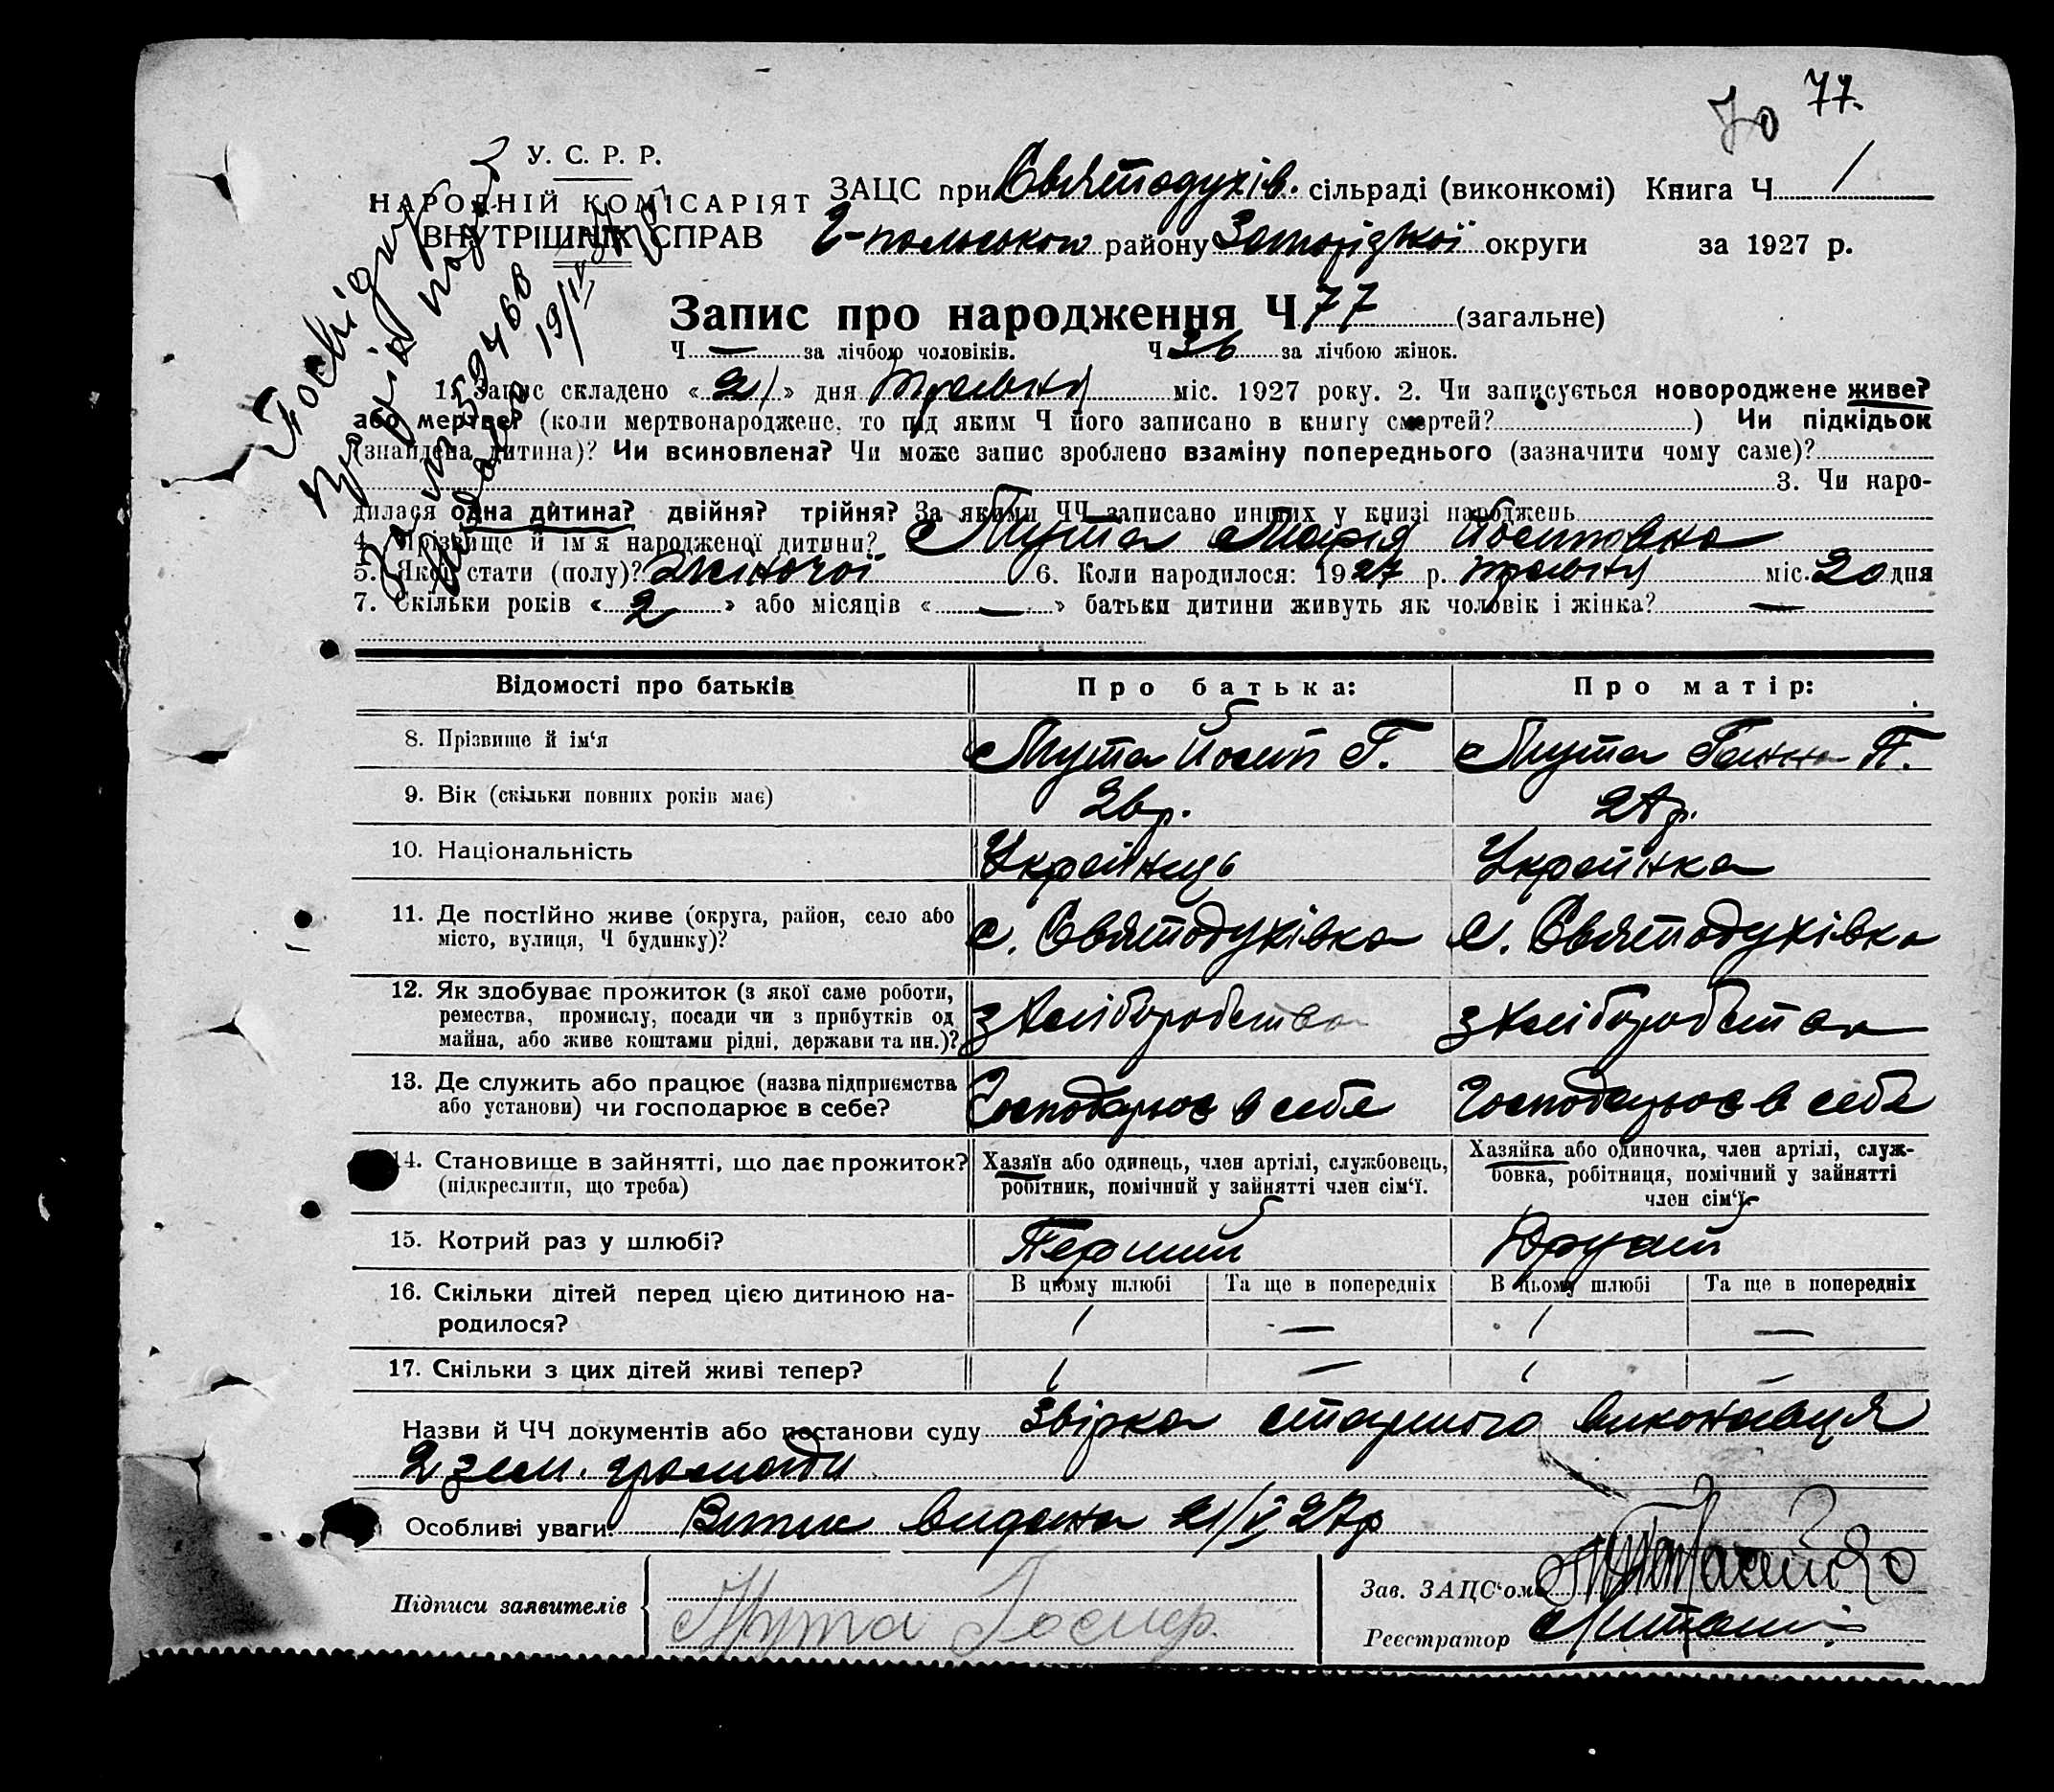 70 77.
У. С. Р. Р.
НАРОДНІЙ КОМІСАРІЯТ
ВНУТРІШНІХ СПРАВ
ЗАЦС при Святодухів. сільраді (виконкомі) Книга Ч 1
Г-польського району Запорізької округи за 1927 р.
Запис про народження Ч 77 (загальне)
Ч — за лічбою чоловіків. Ч 36 за лічбою жінок.
1. Запис складено « 21 » дня травня міс. 1927 року. 2. Чи записується новороджене живе?
або мертве? (коли мертвонароджене, то під яким Ч його записано в книгу смертей? ) Чи підкідьок
(знайдена дитина)? Чи всиновлена? Чи може запис зроблено взаміну попереднього (зазначити чому саме)?
3. Чи наро-
дилася одна дитина? двійня? трійня? За якими ЧЧ записано инших у книзі народжень
4. Прізвище й ім'я народженої дитини? Мута Марія Йосиповна
5. Якої стати (полу)? Жіночої 6. Коли народилося: 1927 р. травня міс. 20 дня
7. Скільки років « 2 » або місяців « — » батьки дитини живуть як чоловік і жінка? —
Відомості про батьків Про батька: Про матір:
8. Прізвище й ім'я Мута Йосип Г. Мута Ганна П.
9. Вік (скільки повних років має) 26 р. 27 р.
10. Національність Українець Українка
11. Де постійно живе (округа, район, село або
місто, вулиця, Ч будинку)? с. Святодухівка с. Святодухівка
12. Як здобуває прожиток (з якої саме роботи,
ремества, промислу, посади чи з прибутків од
майна, або живе коштами рідні, держави та ин.)? з хліборобства з хліборобства
13. Де служить або працює (назва підприємства
або установи) чи господарює в себе? Господарює в себе Господарює в себе
14. Становище в зайнятті, що дає прожиток?
(підкреслити, що треба)
Хазяїн або одинець, член артілі, службовець,
робітник, помічний у зайнятті член сім'ї.
Хазяйка або одиночка, член артілі, служ-
бовка, робітниця, помічний у зайнятті
член сім'ї.
15. Котрий раз у шлюбі? Перший Другий
16. Скільки дітей перед цією дитиною на-
родилося?
В цьому шлюбі Та ще в попередніх В цьому шлюбі Та ще в попередніх
1 — 1 —
17. Скільки з цих дітей живі тепер? 1 — 1 —
Назви й ЧЧ документів або постанови суду Звірка старшого виконавця
2 зем. громади
Особливі уваги: Витис видана 21/V 27р
Підписи заявителів Мута Іосиф.
Зав. ЗАЦС'ом
Реєстратор